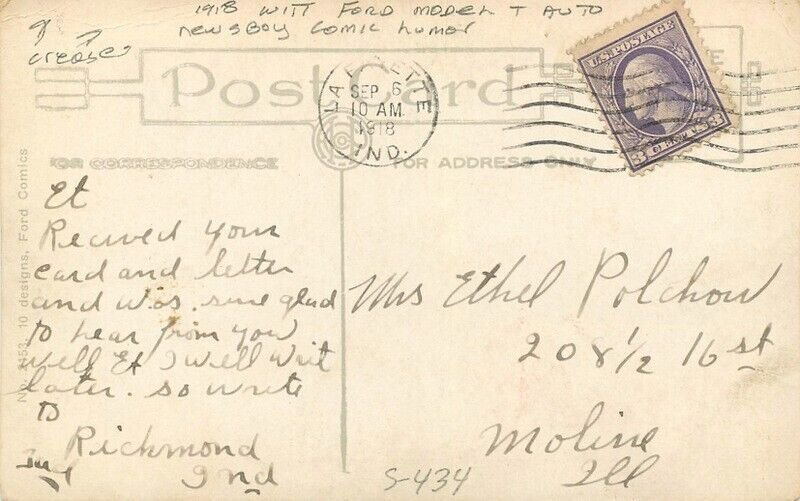 1918 WITT FORD MODEL T AUTO
NEWSBOY COMIC HUMOR
creases
Post Card
LAFAYETTE
SEP 6
10 AM
1918
IND.
U.S. POSTAGE
3 CENTS 3
FOR CORRESPONDENCE
FOR ADDRESS ONLY
10 designs, Ford Comics
Et
Recived your
card and letter
and was. sure glad
to hear from you
well Et I well writ
later. so write
to
Richmond
Ind
Mrs Ethel Polchow
208 1/2 16 st
Moline
Ill
S-434